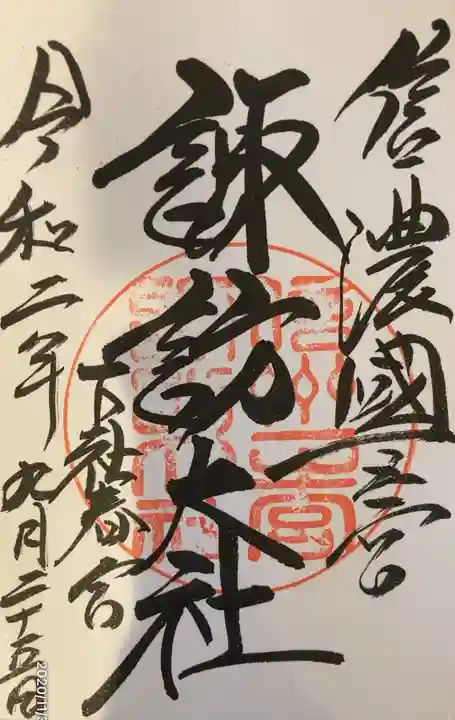 信濃國一之宮
諏訪大社
下社春宮
令和二年九月二十五日
2020/11/